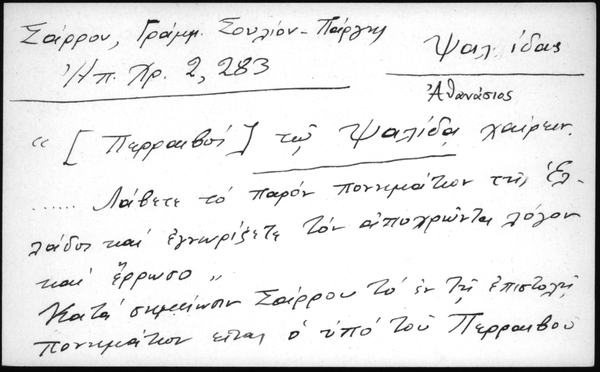 Σάρρου, Γράμμ. Σουλίου - Πάργης
Ἠπ. Χρ. 2, 283
Ψαλίδας
Ἀθανάσιος
" [Περραιβοῦ] τῷ Ψαλίδᾳ χαίρειν.
...... Λάβετε τό παρόν πονημάτιον τῆς Ἑλ-
λάδος καί ἐγνωρίζετε τόν ἀποχρῶντα λόγον
καί ἔρρωσο "
Κατά σημείωσιν Σάρρου τό ἐν τῇ ἐπιστολῇ
πονημάτιον εἶναι ὁ ὑπό τοῦ Περραιβοῦ